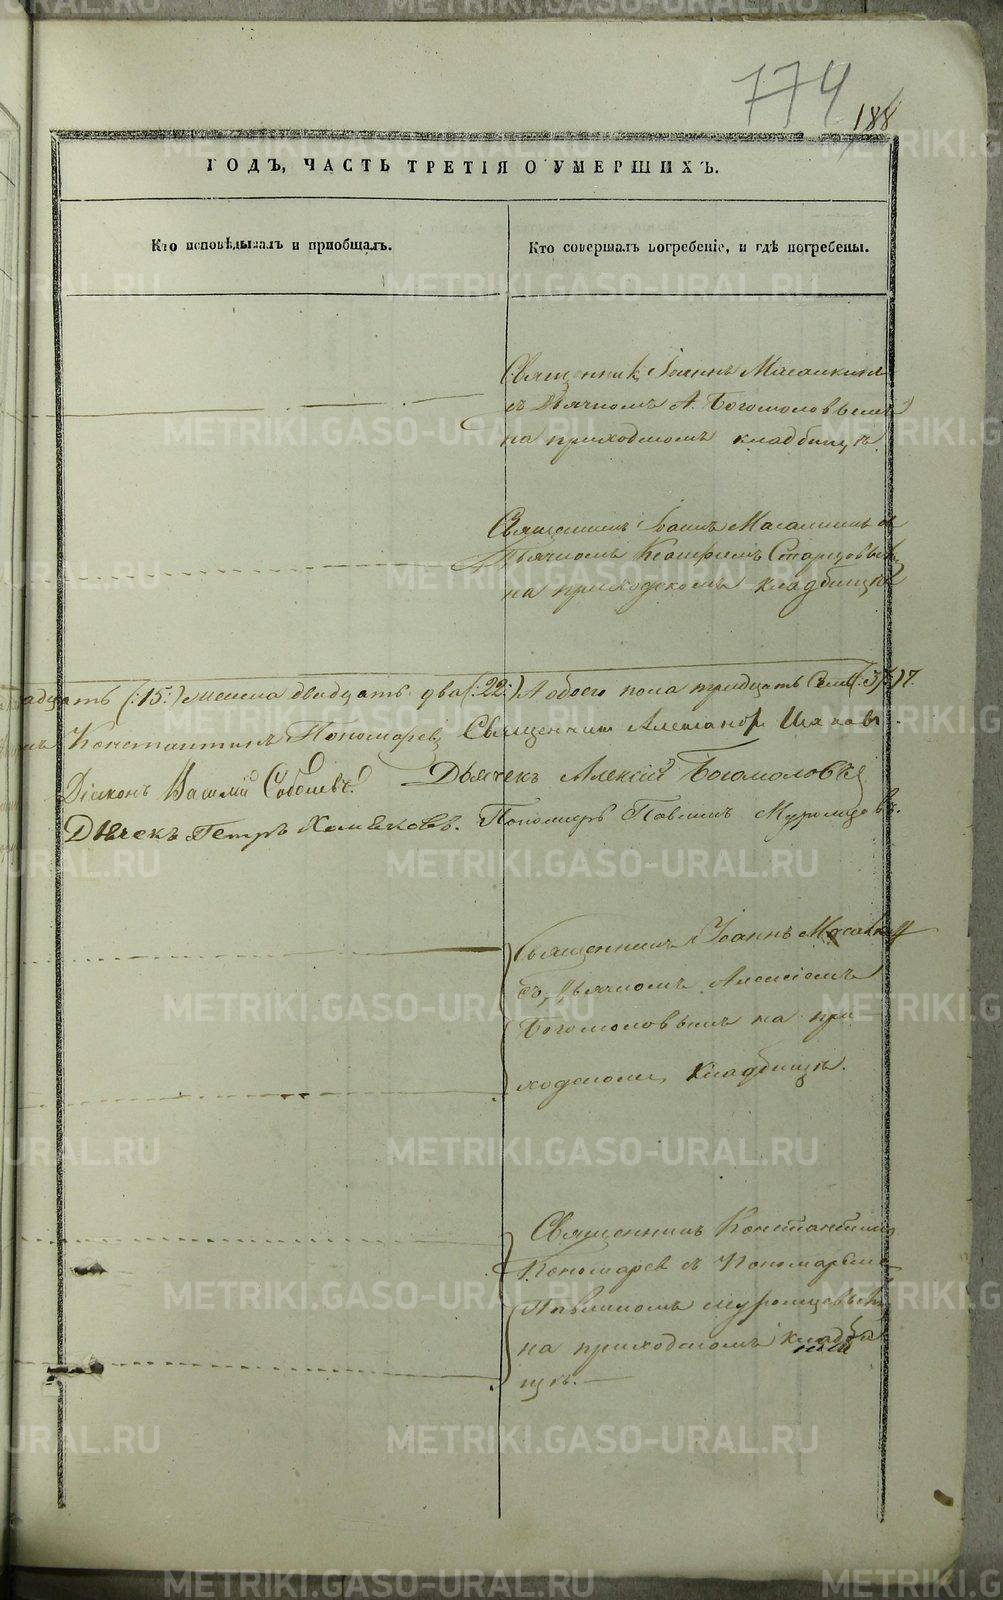 774
188
ГОДЪ, ЧАСТЬ ТРЕТІЯ О УМЕРШИХЪ.
Кто исповѣдывалъ и пріобщалъ.
Кто совершалъ погребеніе, и гдѣ погребены.
Священникъ Іоаннъ
съ Дьячкомъ А. Богомоловымъ
на приходскомъ кладбищѣ.
Священникъ Іоаннъ съ
Дьячкомъ Старцовымъ
на приходскомъ кладбищѣ
адцать (:15:) женска двадцать два (:22:) А обоего пола тридцать семь (:37:)
Константинъ Пономаревъ Священникъ Александръ
Діаконъ Василій Соболевъ. Дьячекъ Алексій Богомоловъ
Дьячекъ Петръ Хомяковъ. Пономарь Павлинъ Муромцовъ.
Священникъ Іоаннъ
съ Дьячкомъ Алексіемъ
Богомоловымъ на при
ходскомъ Кладбищѣ.
Священникъ Константинъ
Пономаревъ съ Пономаремъ
Павлиномъ Муромцовымъ
на приходскомъ кладби
щѣ.
METRIKI.GASO-URAL.RU